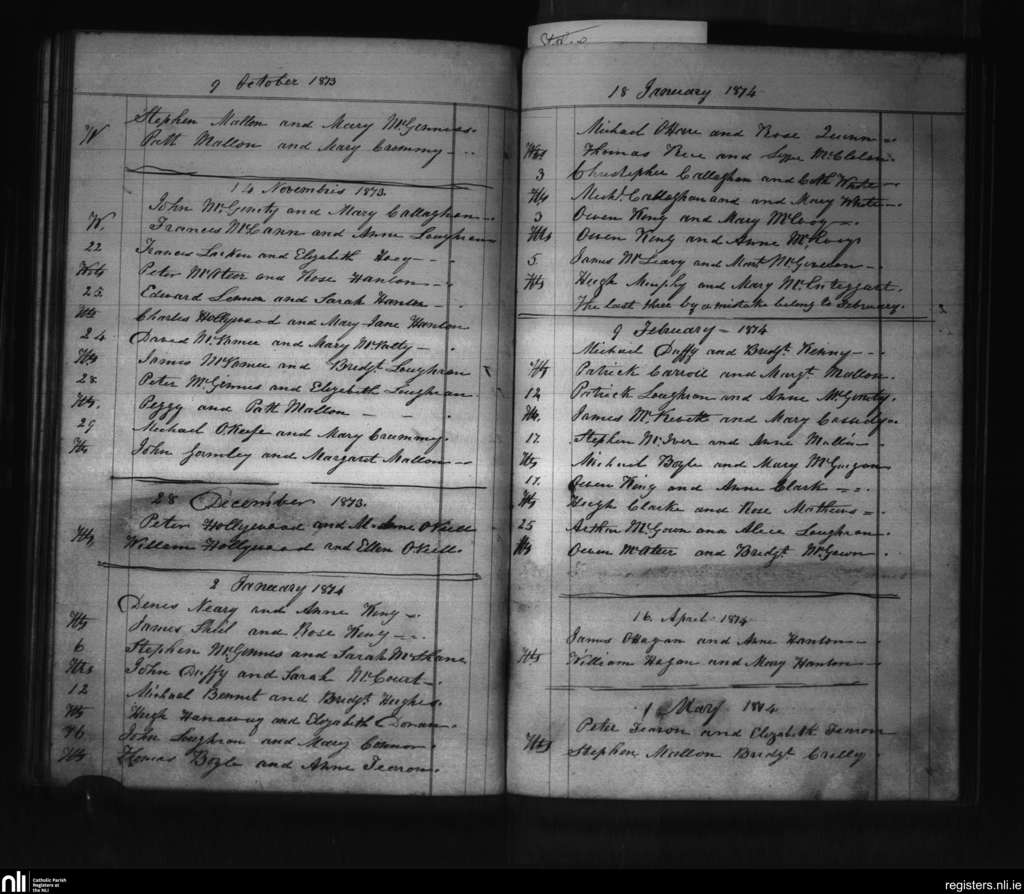 9 October 1873
Stephen Mallon and Mary McGenniss
W Patk Mallon and Mary Crummy
14 Novembris 1873.
John McGinity and Mary Callaghan
W. Francis McCann and Anne Loughran
22 Francis Larken and Elizabeth
Wits Peter McAteer and Rose Hanlon
25. Edward Lennon and Sarah
Wts Charles Hollywood and Mary Jane Hanlon
24 David McKamee and Mary McNally
Wts James McKamee and Bridgt Loughran
28 Peter McGinnis and Elizabeth Loughran
Wts. Peggy and Patk Mallon
29 Michael OKeefe and Mary Crummy.
Wts John Gormley and Margaret Mallon
28 December 1873.
Peter Hollywood and M. Anne ONeill
Wts William Hollywood and Ellen ONeill.
2 January 1874
Denis Neary and Anne King
Wts James Shiel and Rose King
6 Stephen McGinnis and Sarah McShane
Wts John Duffy and Sarah McCourt
12 Michael Bennet and Bridgt Hughes.
Wts Hugh Hanaway and Elizabeth Doran.
16 John Loughran and Mary Connor
Wts Thomas Boyle and Anne Fearon.
18 January 1874
Michael OHare and Rose Quinn
Wts Thomas Rice and McClelan
3 Christopher Callaghan and Cath White
Wts Michl. Callaghan and and Mary White
3 Owen King and Mary McEvoy
Wts Owen King and Anne McEvoy
5. James McLeavy and Mart McGivern
Wts Hugh Murphy and Mary McEnteggart.
The last three by a mistake belong to February.
9 February 1874
Michael Duffy and Bridgt. Kenny
Wts Patrick Carroll and Margt. Mallon.
12 Patrick Loughran and Anne McGinity.
Wts. James McKevitt and Mary Cassidy
17. Stephen McIver and Anne Mallon
Wts Michael Boyle and Mary McGuigan
17. Owen King and Anne Clark
Wts Hugh Clarke and Rose Mathews
25 Arthur McGown and Alice Loughran.
Wts Owen McAteer and Bridgt McGown
16. April 1874
James OHagan and Anne Hanlon
Wts William Hagan and Mary Hanlon
1 May 1874
Peter Fearon and Elizabeth Fearon
Wts Stephen Mallon Bridgt Crilly
nli Catholic Parish Registers at the NLI
registers.nli.ie